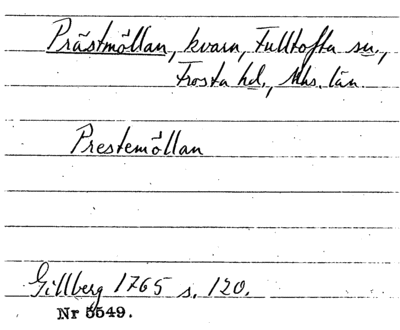 Prästmöllan, kvarn, Fulltofta sn.,
Frosta hd., Mhs. län
Prestemöllan
Gillberg 1765 s. 120.
Nr 5549.